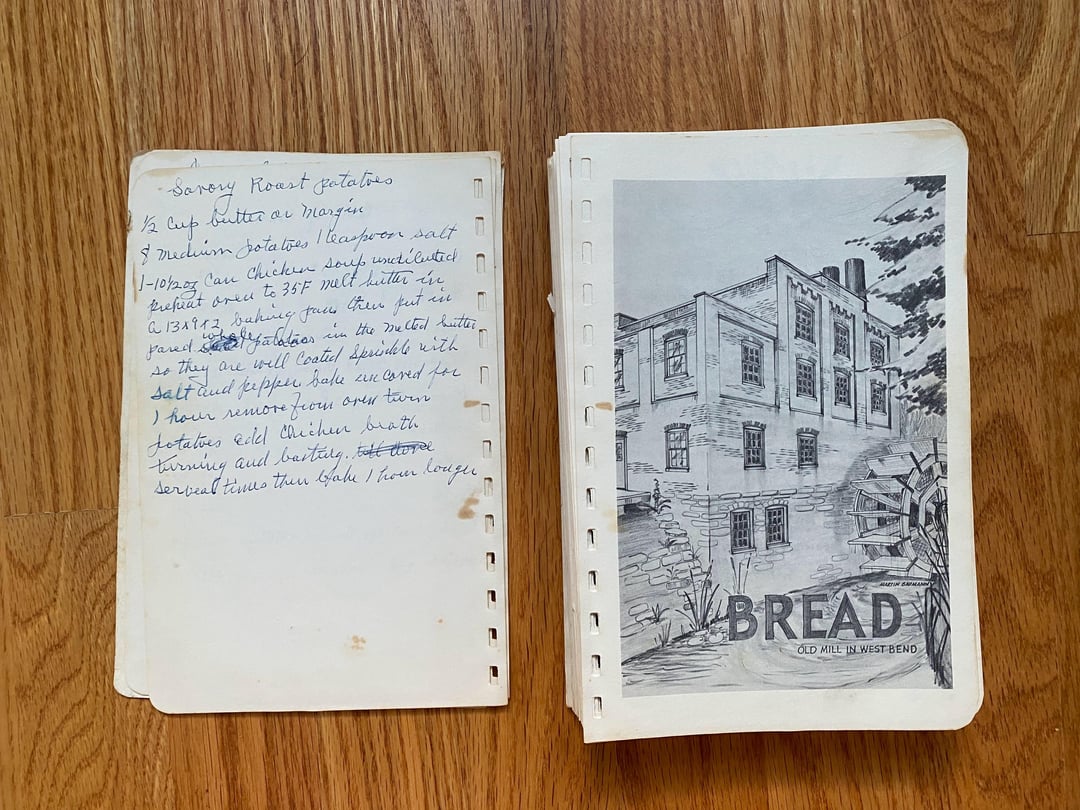 Savory Roast potatoes
1/2 cup butter or Margin
8 medium potatoes 1 teaspoon salt
1-10 1/2 oz Can Chicken soup undiluted
preheat oven to 35F melt butter in
a 13x9x2 baking pan then put in
pared whole potatoes in the melted butter
so they are well coated Sprinkle with
salt and pepper bake uncoved for
1 hour remove from oven turn
potatoes add Chicken broth
turning and basting. till done
serveal times then bake 1 hour longer
MARTIN BAUMANN
BREAD
OLD MILL IN WEST BEND